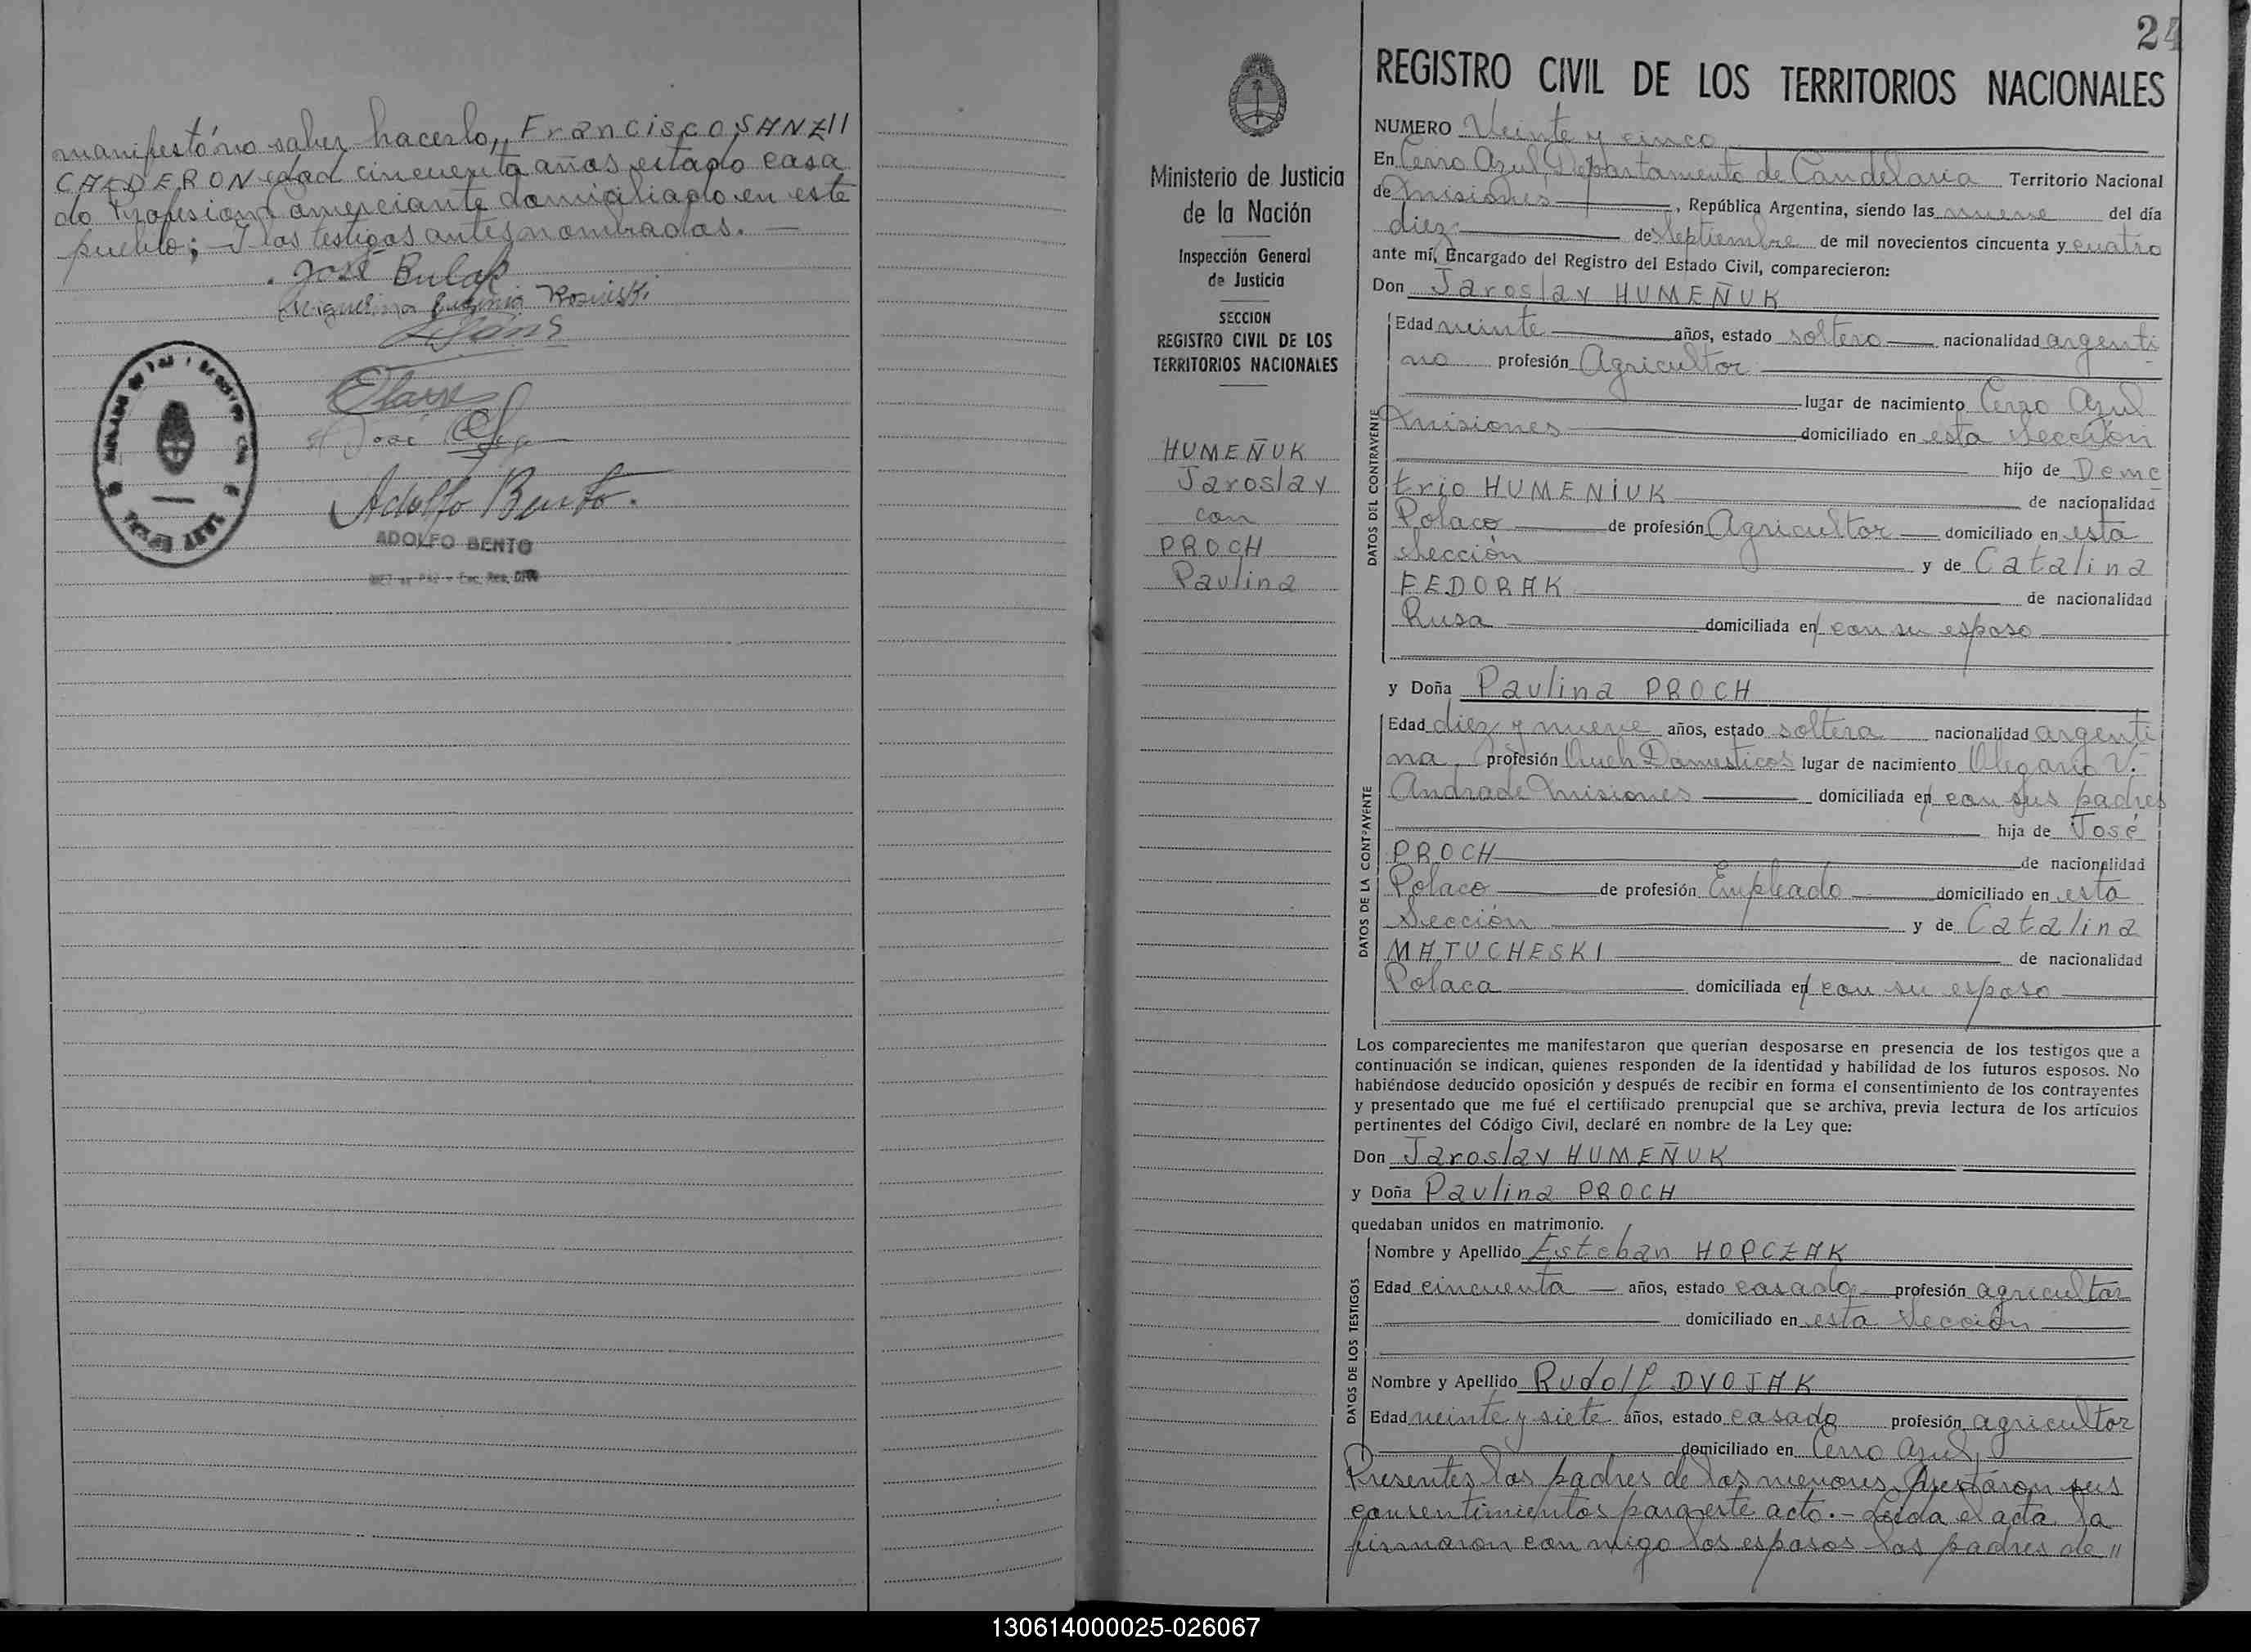 manifestó no saber hacerlo,, Francisco SANZ//
CALDERON edad cincuenta años estado casa
do Profesion Comerciante domiciliado en este
pueblo; Y los testigos antes nombrados. —
José Bulak
Eugenia
José
Adolfo Bento.
ADOLFO BENTO
24
REGISTRO CIVIL DE LOS TERRITORIOS NACIONALES
Ministerio de Justicia
de la Nación
Inspección General
de Justicia
SECCION
REGISTRO CIVIL DE LOS
TERRITORIOS NACIONALES
HUMEÑUK
Jaroslav
con
PROCH
Paulina
NUMERO Veinte y cinco
En Cerro Azul, Departamento de Candelaria Territorio Nacional
de Misiones, República Argentina, siendo las nueve del día
diez de Septiembre de mil novecientos cincuenta y cuatro
ante mí, Encargado del Registro del Estado Civil, comparecieron:
Don Jaroslav HUMEÑUK
DATOS DEL CONTRAYENTE
Edad veinte años, estado soltero nacionalidad argenti
no profesión Agricultor
lugar de nacimiento Cerro Azul
Misiones domiciliado en esta Sección
hijo de Deme
trio HUMENIUK de nacionalidad
Polaco de profesión Agricultor domiciliado en esta
Sección y de Catalina
FEDORAK de nacionalidad
Rusa domiciliada en/ con su esposo
y Doña Paulina PROCH
DATOS DE LA CONTRAYENTE
Edad diez y nueve años, estado soltera nacionalidad argenti
na. profesión Queh Domesticos lugar de nacimiento Olegario V.
Andrade Misiones domiciliada en/ con sus padres
hija de José
PROCH de nacionalidad
Polaco de profesión Empleado domiciliado en esta
Sección y de Catalina
MATUCHESKI de nacionalidad
Polaca domiciliada en/ con su esposo
Los comparecientes me manifestaron que querían desposarse en presencia de los testigos que a
continuación se indican, quienes responden de la identidad y habilidad de los futuros esposos. No
habiéndose deducido oposición y después de recibir en forma el consentimiento de los contrayentes
y presentado que me fué el certificado prenupcial que se archiva, previa lectura de los artículos
pertinentes del Código Civil, declaré en nombre de la Ley que:
Don Jaroslav HUMEÑUK
y Doña Paulina PROCH
quedaban unidos en matrimonio.
DATOS DE LOS TESTIGOS
Nombre y Apellido Esteban HOPCZAK
Edad cincuenta — años, estado casado profesión agricultor
domiciliado en esta Sección
Nombre y Apellido Rudolf DVOJAK
Edad veinte y siete años, estado casado profesión agricultor
domiciliado en Cerro Azul,
Presentes los padres de los menores, Prestáron sus
consentimientos para este acto.- Leida el acta la
firmaron con migo los esposos los padres de //
130614000025-026067